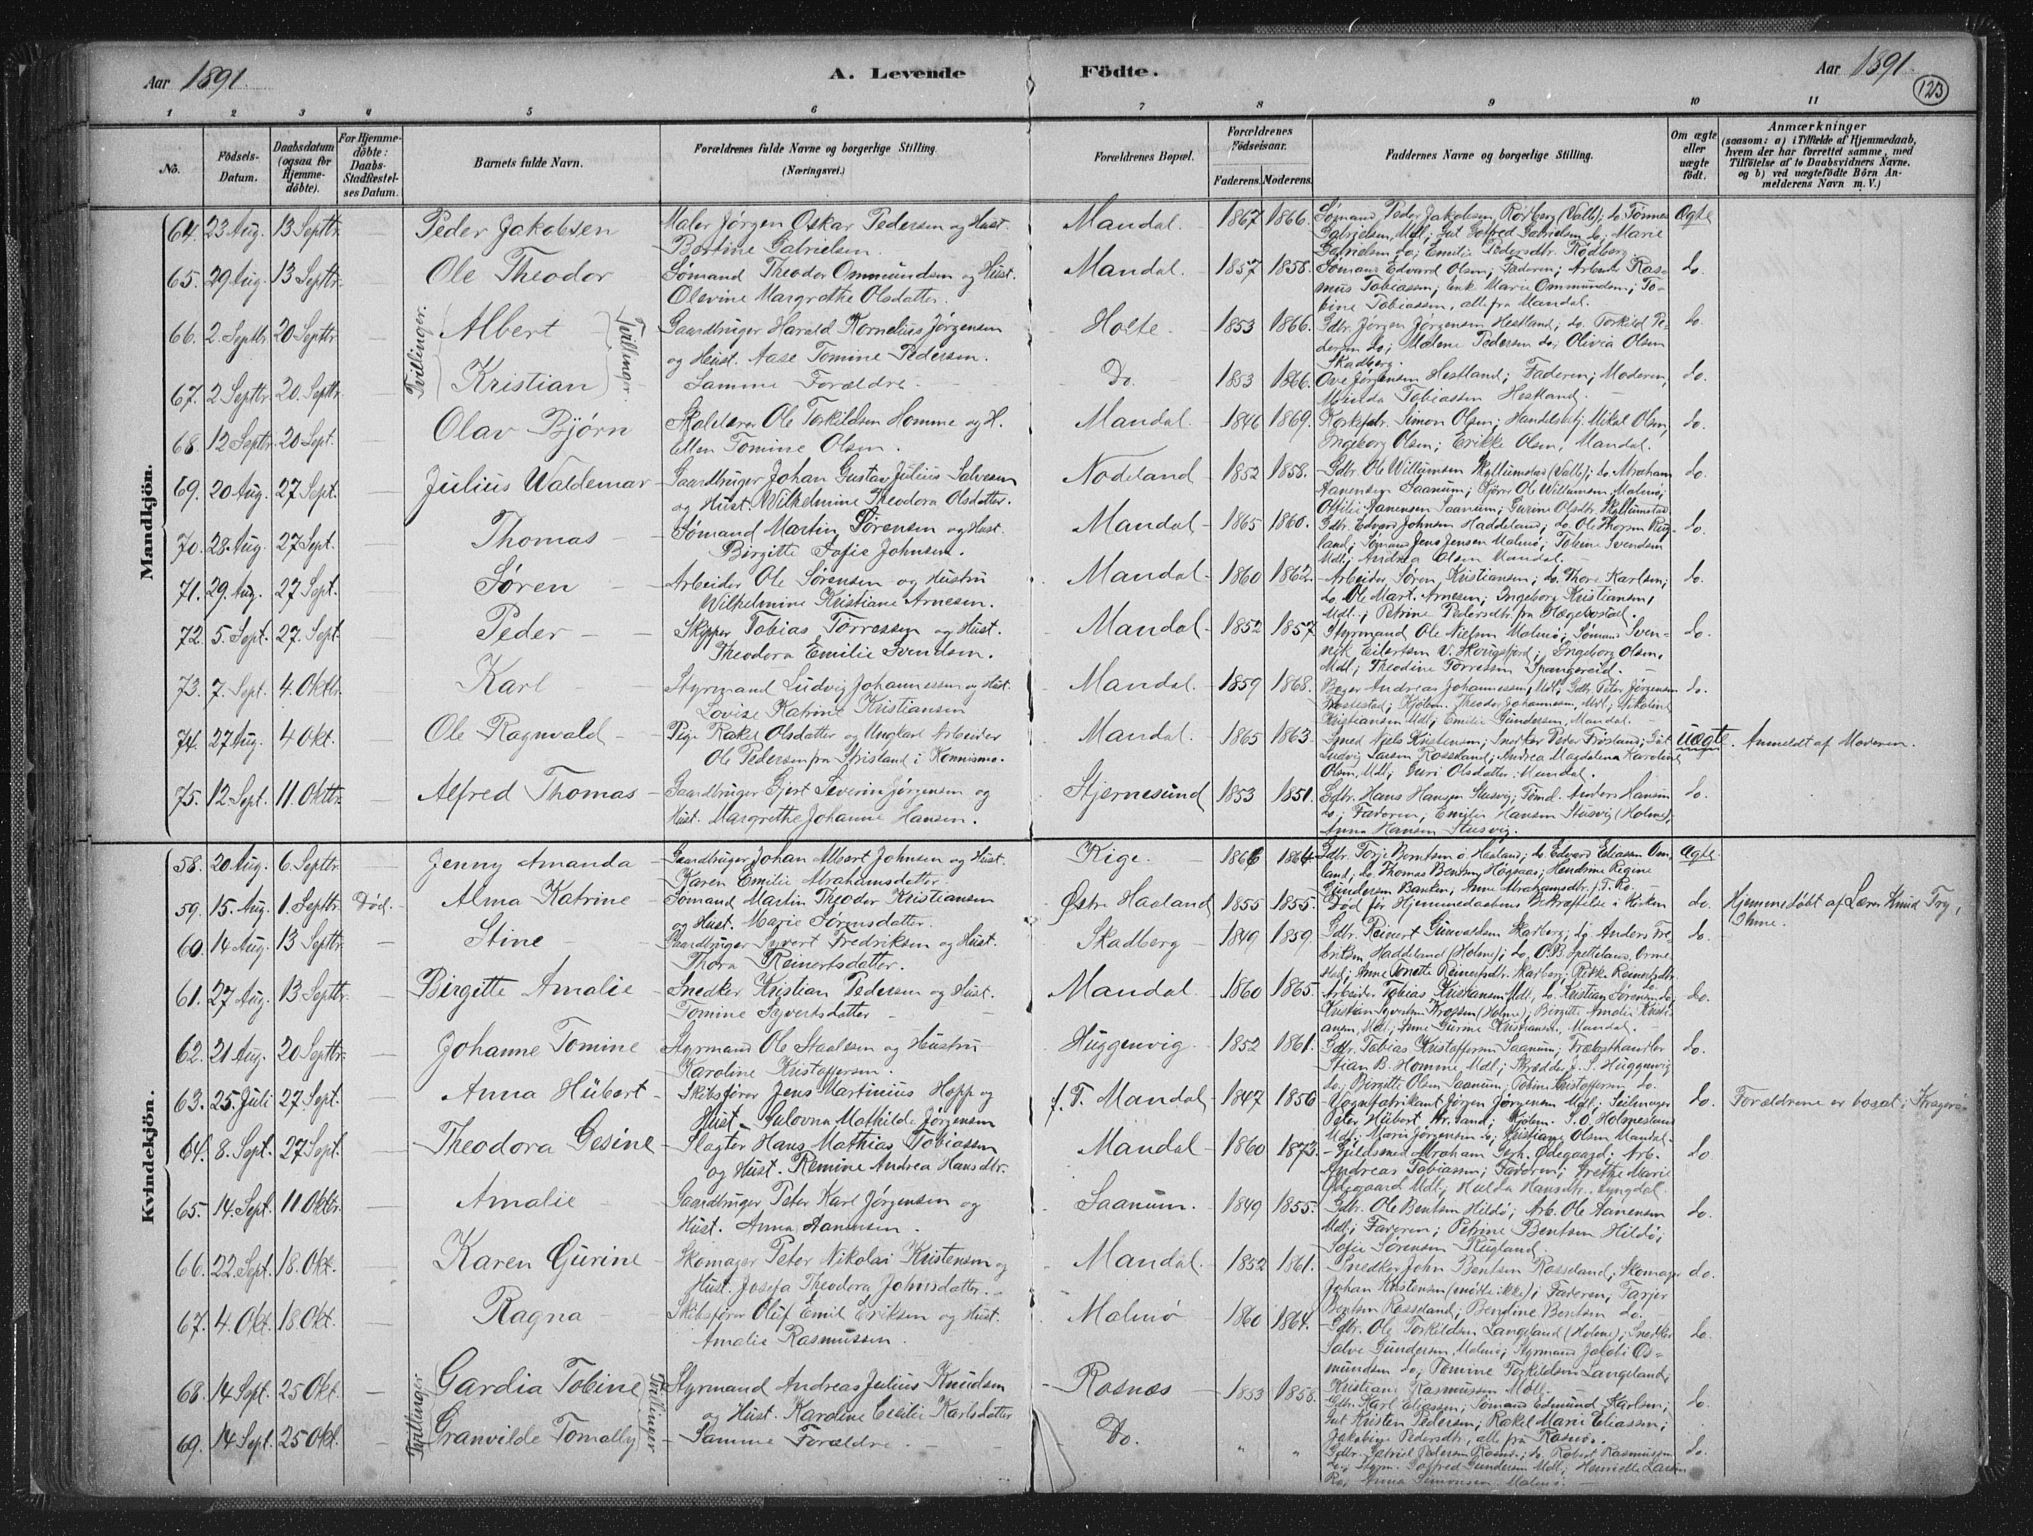 Aar 1891. A. Levende Födte. Aar 1891.
123
1 2 3 4 5 6 7 8 9 10 11
No. Födsels-Datum. Daabsdatum (ogsaa for Hjemme-döbte). For Hjemme-döbte: Daabs-Stadfæstelses Datum. Barnets fulde Navn. Forældrenes fulde Navne og borgerlige Stilling. (Næringsvei.) Forældrenes Bopæl. Forældrenes Födselsaar. Faderens. Moderens. Faddernes Navne og borgerlige Stilling. Om ægte eller uægte födt. Anmærkninger (saasom: a) i Tilfælde af Hjemmedaab, hvem der har forrettet samme, med Tilföielse af to Daabsvidners Navne, og b) ved uægtefödte Börn Anmelderens Navn m. V.)
Mandkjön.
64. 23 Aug. 13 Septbr. Peder Jakobsen Maler Jörgen Oskar Pedersen og Hust. Mandal. 1867 1866. Sömand Peder Jakobsen, Rödberg (Valb); do. Tönnes Ægte
Bertine Gabrielsen. Gabrielsen, Mdl; Gut Gotfred Gabrielsen do; Marie
Gabrielsen do; Emilie Pedersdtr. Rödberg
65. 29 Aug. 13 Septbr. — Ole Theodor Sømand Theodor Ommundsen og Hust. Mandal. 1857 1858. Sømand Edvard Olsen; Faderen; Arbeider Ras- do.
Olevine Margrethe Olsdatter. mus Tobiassen; Enk. Marie Ommundsen; To-
bine Tobiassen, alle fra Mandal.
66. 2 Septbr. 20 Septbr. — Tvillinger: Albert Tvillinger. Gaardbruger Harald Kornelius Jørgensen Holte 1853 1866. Gdbr. Jørgen Jørgensen Hestland; do. Torkild Pe- do.
og Hust. Aase Tomine Pedersen. dersen do; Malene Pedersen do; Olivia Olsen
Skadberg.
67. 2 Septbr. 20. Septbr. — Kristian Samme Forældre. Do. 1853 1866. Ove Jørgensen Hestland; Faderen; Moderen, do.
Tobiassen Hestland.
68. 12 Septbr. 20 Sept. — Olav Bjørn Ole Torkildsen Homme og H. Mandal 1846 1869. Simon Olsen; Handelsbetj. Mikal Olsen, do.
Ellen Tomine Olsen. Ingeborg Olsen; Erikke Olsen, Mandal.
69. 20 Aug. 27 Sept. — Julius Waldemar Gaardbruger Johan Gustav Julius Salvesen Nodeland 1852 1858. Gdbr. Ole Willumsen (Valb); do. Abraham do.
og Hust. Wilhelmine Theodora Olsdatter. Aanensen Saanum; Ole Willumsen Malmö;
Aanensen Saanum; Gurine Olsdtr.
70. 28 Aug. 27 Sept. — Thomas Sömand Martin Sörensen og Hust. Mandal 1865 1860. Gdbr. Edvard Johnsen Haddeland; do. Ole Thorsen Rug- do.
Birgitte Sofie Johnsen. land; Sömand Jens Jensen Malmö; Tobine Svendsen
Mdl; Andrea Olsen Mandal.
71. 29. Aug. 27 Sept. — Sören Arbeider Ole Sörensen og Hustru Mandal. 1860 1862. Arbeider Sören Kristiansen; do. Thore Karlsen; do.
Wilhelmine Kristiane Arnesen. do. Ole Mart. Arnesen; Ingeborg Kristiansen,
Mdl.; Petrine Pedersdtr. fra Hægebostad.
72. 5. Sept. 27. Sept. — Peder Skipper Tobias Torressen og Hust. Mandal 1852 1857. Styrmand Ole Nielsen Malmö; Sömand Sven- do.
Theodora Emilie Svendsen. Eilertsen V. Skougsfjord; Ingeborg Olsen,
Mdl; Theodine Torressen Spangereid.
73. 7. Sept. 4. Oktbr. — Karl Styrmand Ludvig Johannessen og Hust. Mandal. 1859 1868. Bager Andreas Johannessen, Mdl; Gdbr. Peter Jørgensen do.
Lovise Katrine Kristiansen Theodor Johannessen, Mdl; Nikoline
Kristiansen Mdl; Emilie Gundersen, Mandal.
74. 27 Aug. 4 Okt. — Ole Ragnvald Pige Rakel Olsdatter og Ungkarl Arbeider Mandal 1865 1863. Smed Niels Kristensen; Snedker Peder Frøsland; Gut Uægte. Anmeldt af Moderen.
Ole Pedersen fra i Konnismo. Ludvig Larsen Rossland; Andrea Magdalena Karoline
Olsen, Mdl; Guri Olsdatter Mandal.
75. 12 Sept. 11. Oktbr. — Alfred Thomas Gaardbruger Gjert Severin Jørgensen og Stjernesund 1853 1851. Gdbr. Hans Hansen Stusvig; Tömd. Anders Hansen do.
Hust. Margrethe Johanne Hansen. do; Faderen; Emilie Hansen Stusvig (Holme);
Anna Hansen Stusvig.
Kvindekjön.
58. 20 Aug. 6. Septbr. — Jenny Amanda Gaardbruger Johan Albert Johnsen og Hust. Kige. 1866 1864 Gdbr. Torje Berntsen ö. Haaland; do Edvard Eliassen Om- Ægte
Karen Emilie Abrahamsdatter. land, do. Thomas Bentsen Högsaas; Hendrine Regine
Gundersen Banken; Anne Abrahamsdtr. f. T. Ro.
59. 15. Aug. 1. Septbr. Död. Alma Katrine Sömand Martin Theodor Kristiansen Østr. Haaland 1855 1855. Död før Hjemmedaabens Bekræftelse i Kirken do. Hjemmedøbt af Lærer Knud Try,
og Hust. Marie Sørensdatter. Ihme.
60. 14 Aug. 13 Septbr. — Stine Gaardbruger Syvert Fredriksen og Hust. Skadberg 1849 1859. Gdbr. Reinert Gunvaldsen Skarberg; do. Anders Fre- do.
Thora Reinertsdatter. driksen Haddeland (Holme); do. O. B. Spetteland, Orme-
stad; Anne Tonette Reinertsdtr. Skarberg; Rikke Reinertsdtr. do.
61. 27 Aug. 13 Septbr. — Birgitte Amalie Snedker Kristian Pedersen og Hust. Mandal. 1860 1865. Arbeider Tobias Kristiansen Mdl; do. Kristian Sørensen do; do.
Tomine Syvertsdatter Kristian Syvertsen (Holme); Birgitte Amalie Kristi-
ansen, Mdl; Anne Gurine Kristiansen, Mandal.
62. 21 Aug. 20 Septbr. — Johanne Tomine Styrmand Ole Staalesen og Hustru Huggenvig 1852 1861. Gdbr. Tobias Kristoffersen Saanum; Træbesthandler do.
Karoline Kristoffersen. Stian B. Homme, Mdl; Skrædder J. S. Huggenvig
do; Birgitte Olsen Saanum; Tobine Kristoffersen do.
63. 25. Juli 27. Sept. — Anna Hübert Skibsfører Jens Martinius Hopp og f. T. Mandal 1847 1850 Vognfabrikant Jörgen Jörgensen Mdl; Seilmager do. Forældrene er bosat i Kragerö
Hust. Mathilde Jörgensen Peter Hübert Kr.sand; S. O. Holmesland
Mdl; Marie Jörgensen do; Kristiane Olsen Mandal.
64. 8. Sept. 27 Sept. — Theodora Gesine Slagter Hans Mathias Tobiassen Mandal 1860 1873. Gjeldsmed Abraham Gerh. Ødegaard; Arb. do
og Hust. Remine Andrea Hansdtr. Andreas Tobiassen; Faderen; Grethe Marie
Ødegaard Mdl; Hulda Hansdtr. Lyngdal.
65. 14. Sept. 11 Oktbr. — Amalie Gaardbruger Peter Karl Jørgensen og Saanum. 1849 1855. Gdbr. Ole Bentsen Hildö; Arb. Ole Aanensen do.
Hust. Anna Aanensen. Mdl; Faderen; Petrine Bentsen Hildö;
Sofie Sørensen Rugland.
66. 22. Sept. 18. Okt. — Karen Gurine Skomager Peter Nikolai Kristensen og Mandal. 1852 1861. Snedker John Bentsen Rossland; Skomager do.
Hust. Josefa Theodora Johnsdatter. Johan Kristensen (mötte ikke); Faderen; Tarjer
Bentsen Rossland; Bendine Bentsen do.
67. 4. Okt. 18 Okt. — Ragna Skibsfører Oluf Emil Eriksen og Hust. Malmö 1860 1864. Gdbr. Ole Torkildsen Langeland (Holme); Snedker do.
Amalie Rasmussen. Salve Gundersen, Malmö; Styrmand Jakob Os-
mundsen do; Tomine Torkildsen Langeland;
Kristiane Rasmussen Mdl.
68. 14 Sept. 25 Okt. — Tvillinger Gardia Tobine Tvillinger Styrmand Andreas Julius Knudsen Rosnæs 1853 1858. Gdbr. Karl Eliassen; Sömand Edmund Karlsen; do.
og Hust. Karoline Cecilie Karlsdatter Gut Kristen Pedersen; Rakel Marie Eliassen;
Jakobine Pedersdtr., alle fra Rosnæs.
69. 14 Sept. 25 Okt. — Granvilde Tomally Samme Forældre. Do. " " Gdbr. Gabriel Pedersen Rosnæs; do. Robert Rasmussen do.
do; Styrm. Gotfred Gundersen Mdl; Henriette Larsen
Ro; Anna Simonsen Malmö.